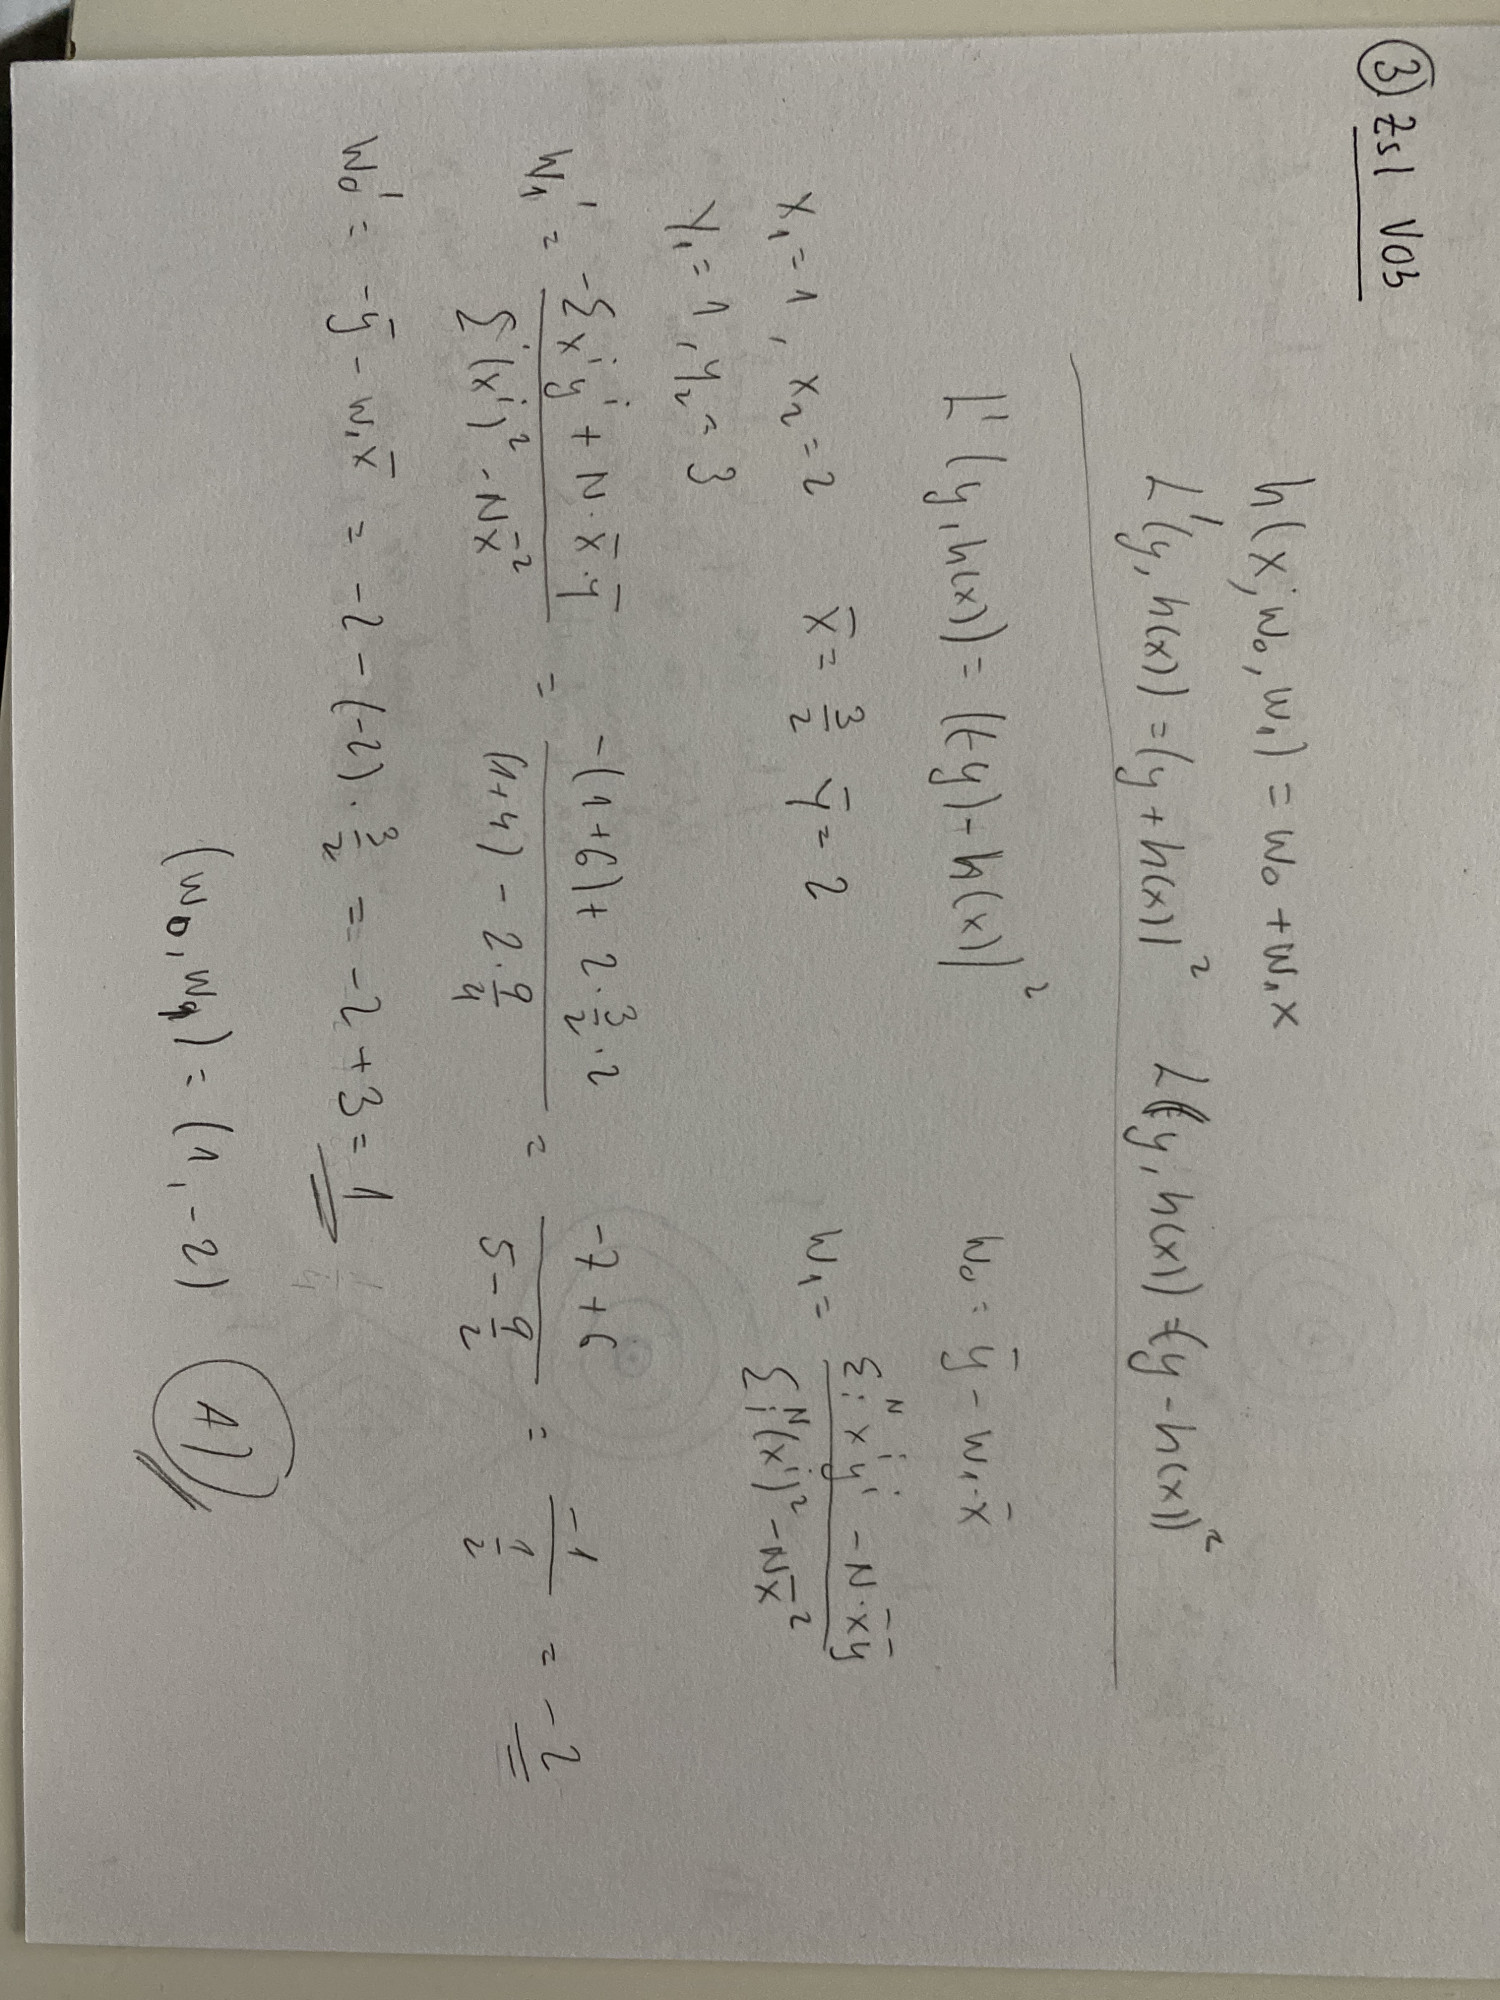 ③ ZS1 V03
h(x; w₀, w₁) = w₀ + w₁x
L'(y, h(x)) = (y + h(x))² L(y, h(x)) = (y - h(x))²
L'(y, h(x)) = ((-y) - h(x))² w₀ = ȳ - w₁·x̄
x₁ = 1, x₂ = 2 x̄ = 3/2 ȳ = 2 w₁ = (Σᵢᴺ xⁱyⁱ - N·x̄ȳ) / (Σᵢᴺ (xⁱ)² - Nx̄²)
y₁ = 1, y₂ = 3
w₁' = (-Σxⁱyⁱ + N·x̄·ȳ) / (Σ(xⁱ)² - Nx̄²) = (-(1+6) + 2·3/2·2) / ((1+4) - 2·9/4) = (-7+6) / (5 - 9/2) = -1 / (1/2) = -2
w₀' = -ȳ - w₁x̄ = -2 - (-2)·3/2 = -2 + 3 = 1
(w₀, w₁) = (1, -2) A)